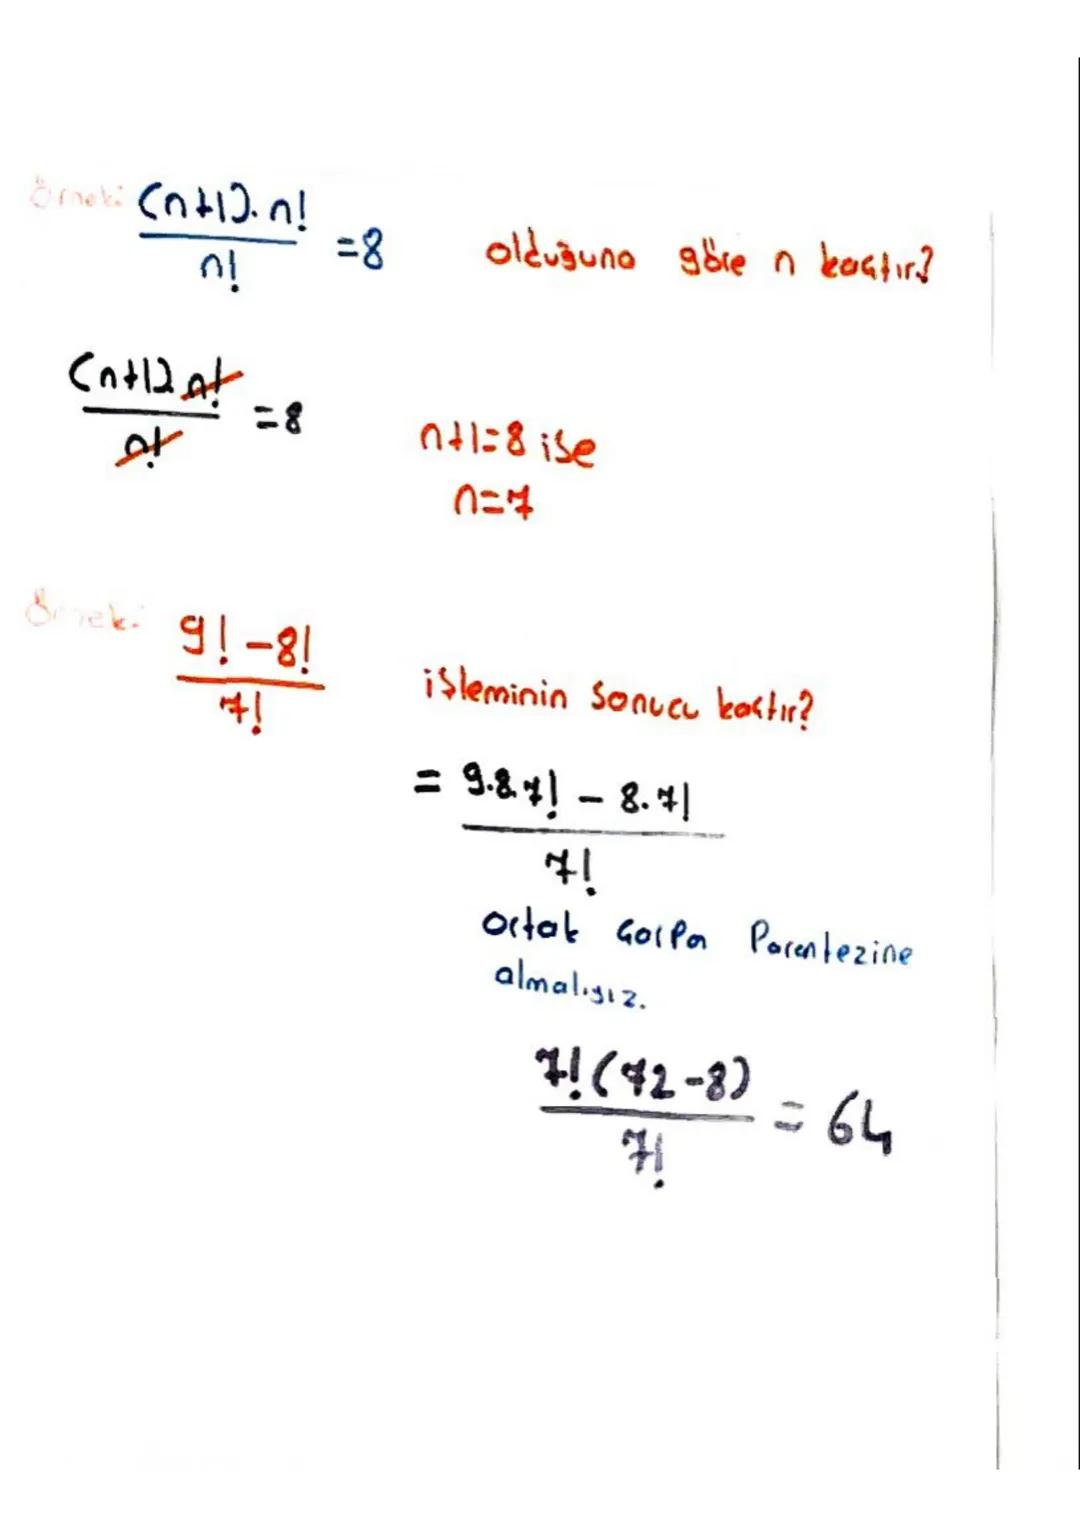 Örnek: (n+1).n! / n! =8 olduğuna göre n kaçtır?
(n+1) n! / n! =8
n+1=8 ise
n=7
Örnek: 9!-8! / 7! işleminin sonucu kaçtır?
= 9.8.7! - 8.7! / 7!
ortak çarpan Parantezine
almalıyız.
7!(72-8) / 7! = 64